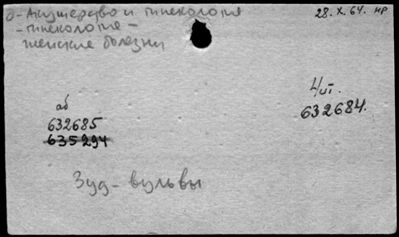 О - Акушерство и гинекология
28.X.64. нр
- гинекология -
женские болезни
4/VI.
аб
632684.
632685
635294
Зуд - вульвы